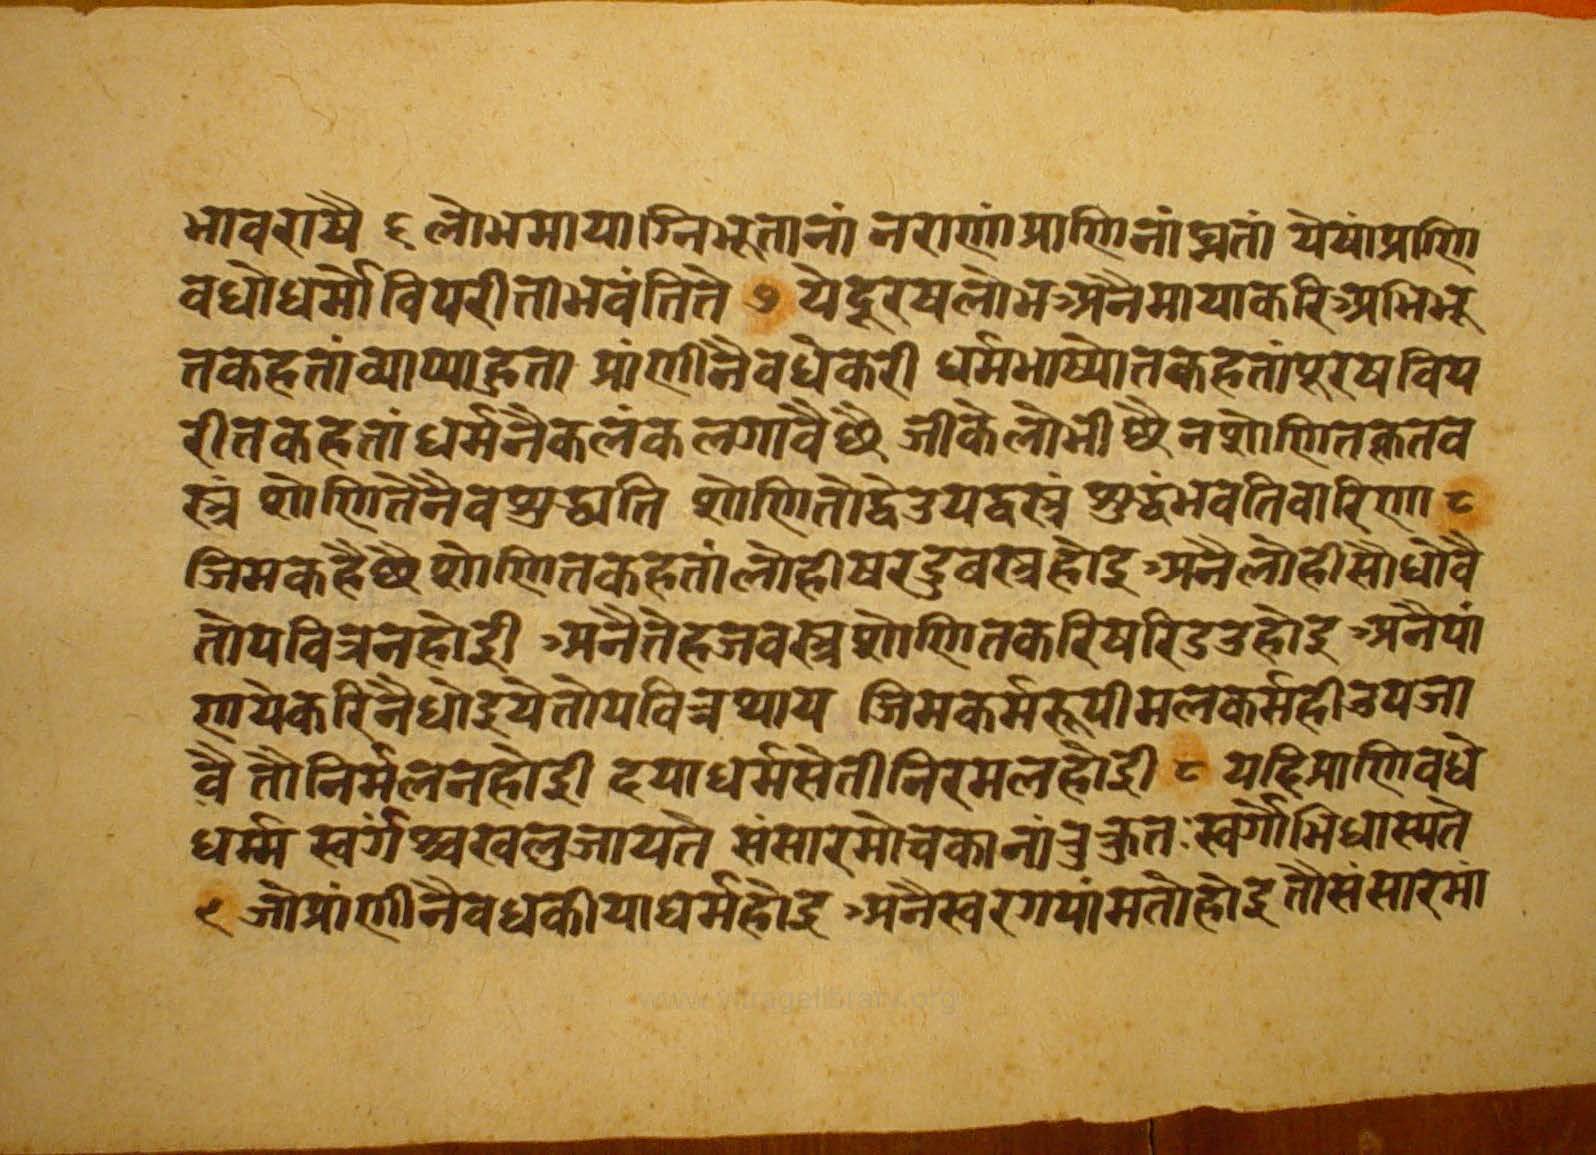 भावरायै ६ लोभमायाग्निभूतानां नराणांप्राणिनांघ्नतां येषांप्राणि
वधोधर्मो विपरीतोभवंतिते ७ येदूरषलोभअनैमायाकरिअभिभू
तकहतांव्याप्याहुता प्रांणीनैवधेकरी धर्मभाष्योतकहतांपूरषविप
रीतकहतां धर्मनैकलंकलगावैछै जीकेलोभीछै नशोणितकृतव
स्त्रं शोणितेनैवशुद्ध्यति शोणितोद्वेउयद्वस्त्रं शुद्धंभवतिवारिणा ८
जिमकहैछै शोणितकहतांलोहीषरडुवस्त्रहोइ अनैलोहीसौधोवै
तोपवित्रनहोई अनैतेहजवस्त्रशोणितकरिषरिडउहोइ अनैपां
णायेकरिनैधोइयेतोपवित्रथाय जिमकर्मरूपीमलकर्महीउपजा
वै तौनिर्मलनहोई दयाधर्मसेतीनिरमलहोई ८ यदिप्राणिवधे
धर्म्म स्वर्गश्चखलुजायते संसारमोचकानां स्वर्गोभिधास्यते
९ जोप्रांणीनैवधकीयाधर्महोइ अनैस्वरगपांमतोहोइ तौसंसारमां
www.vitragelibrary.org